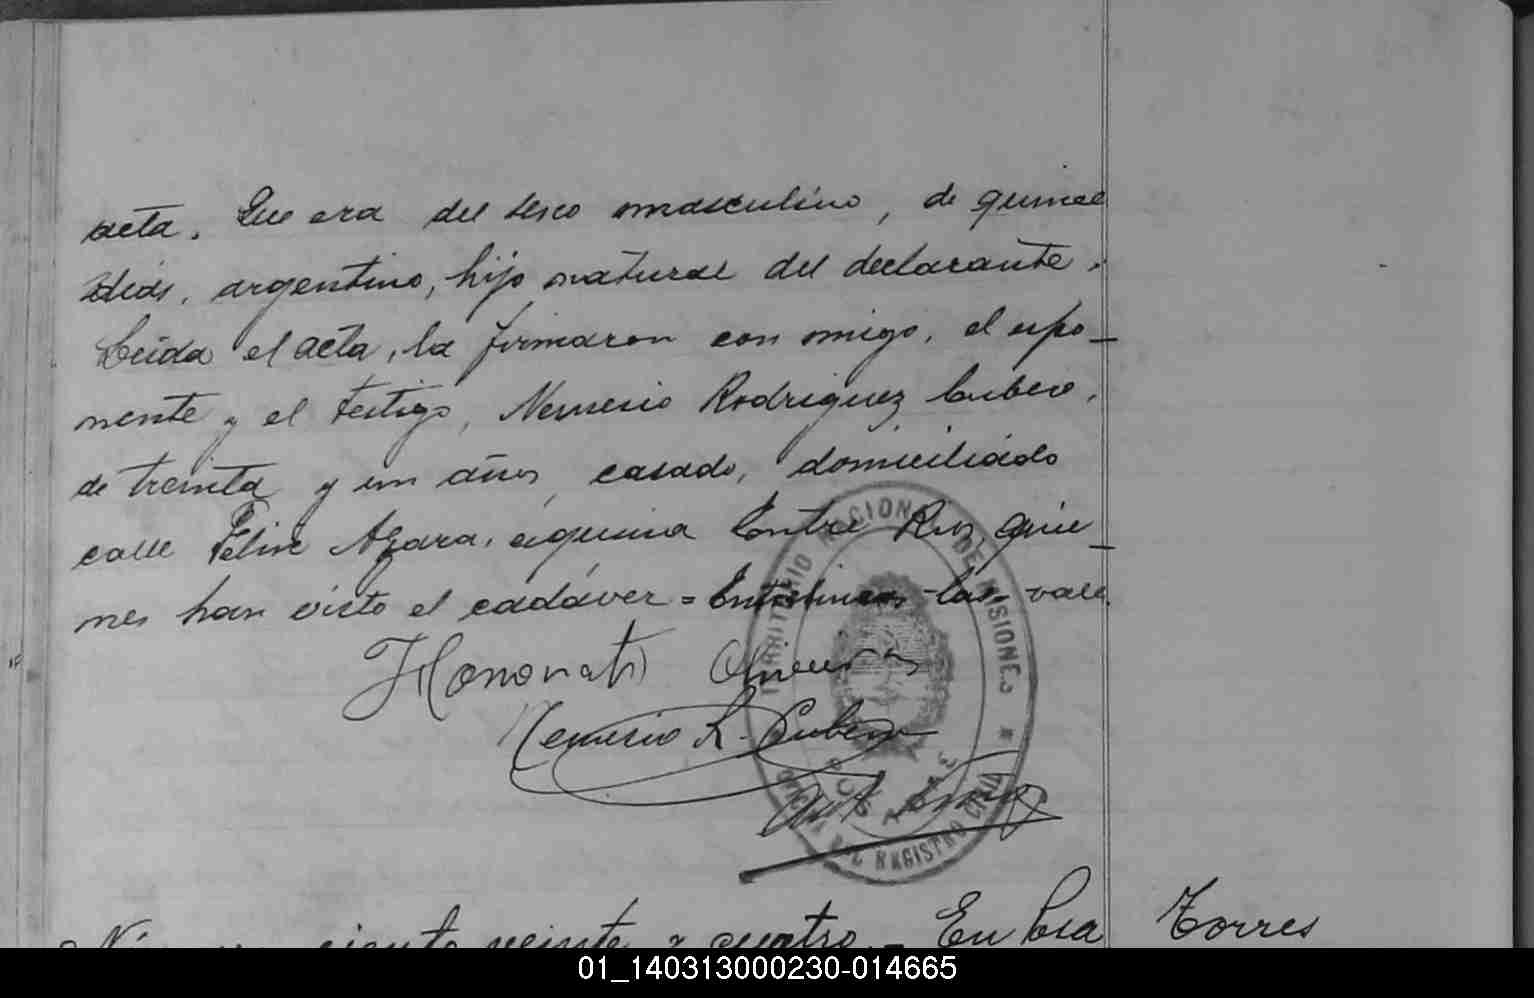 acta. Que era del sexo masculino, de quince
dias, argentino, hijo natural del declarante.
Leida el acta, la firmaron con migo, el expo-
nente y el testigo, Nemesio Rodriguez Cubero,
de treinta y un años, casado, domiciliado
calle Felix Azara, esquina Entre Rios, quie-
nes han visto el cadáver = Entrelineas - las - vale.
Honorato
Nemesio R. Cubero
TERRITORIO NACIONAL DE MISIONES
OFICINA DEL REGISTRO CIVIL
ciento veinte y cuatro - En
Torres
01_140313000230-014665